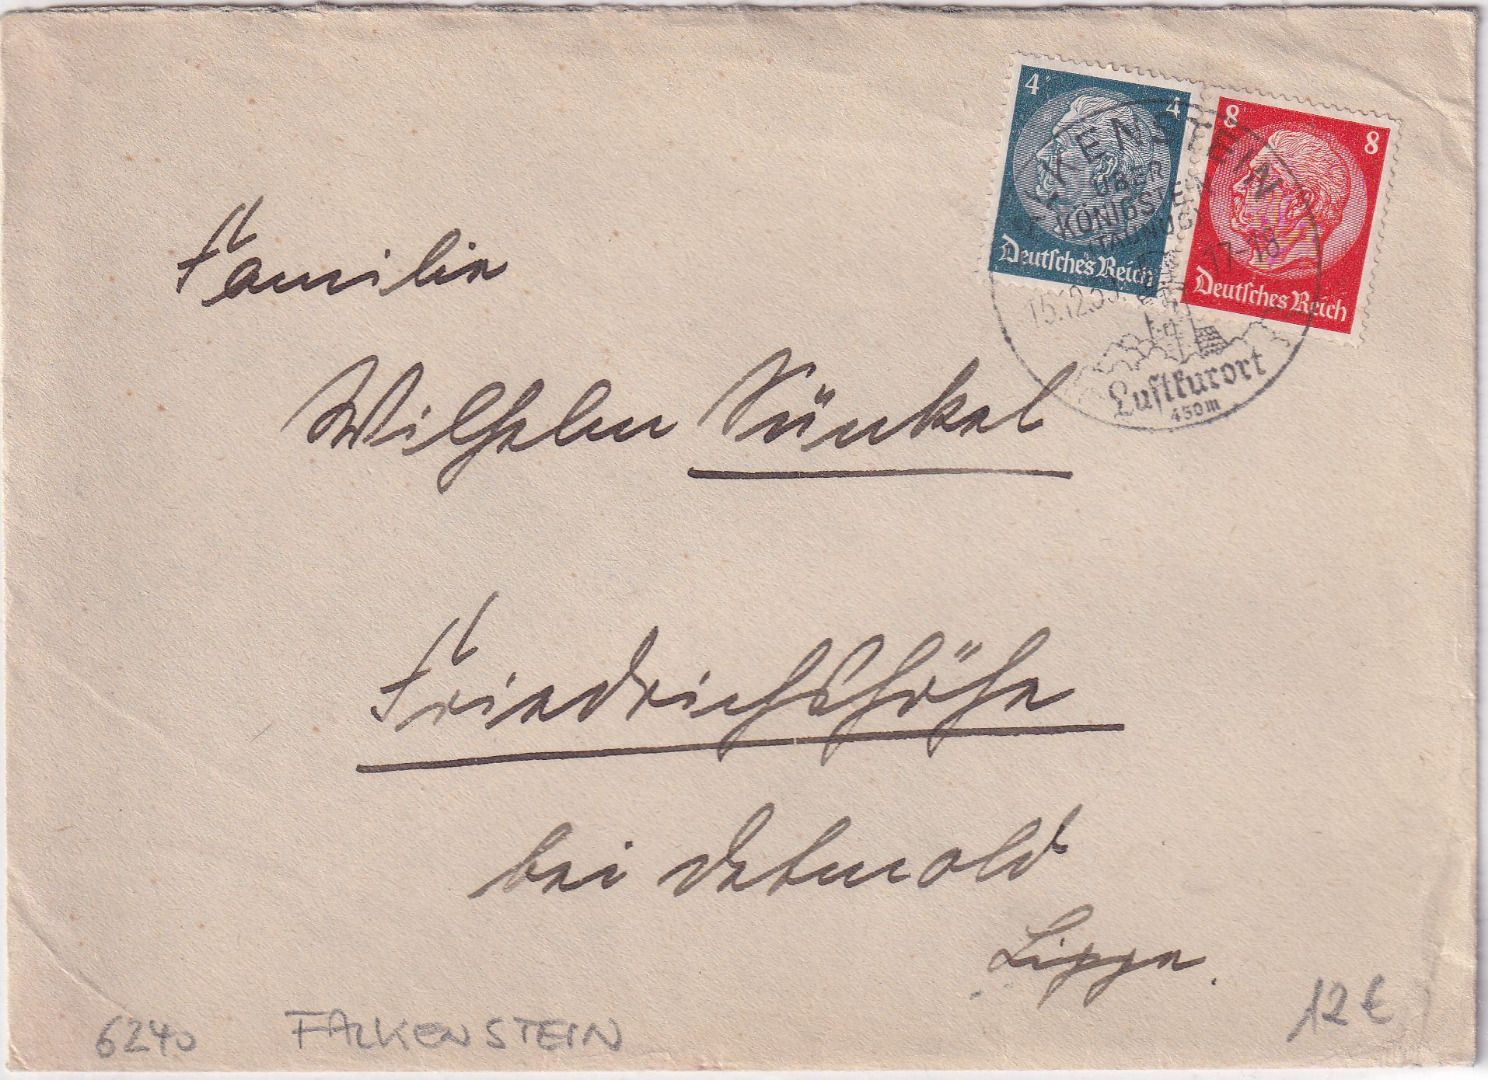 4 4
Deutsches Reich
8 8
Deutsches Reich
FALKENSTEIN
ÜBER
KÖNIGSTEIN
(TAUNUS)
17-18
Luftkurort
450m
Familie
Wilhelm Sünkel
Friedrichshöhe
bei Detmold
Lippe.
6240 FALKENSTEIN 12 €